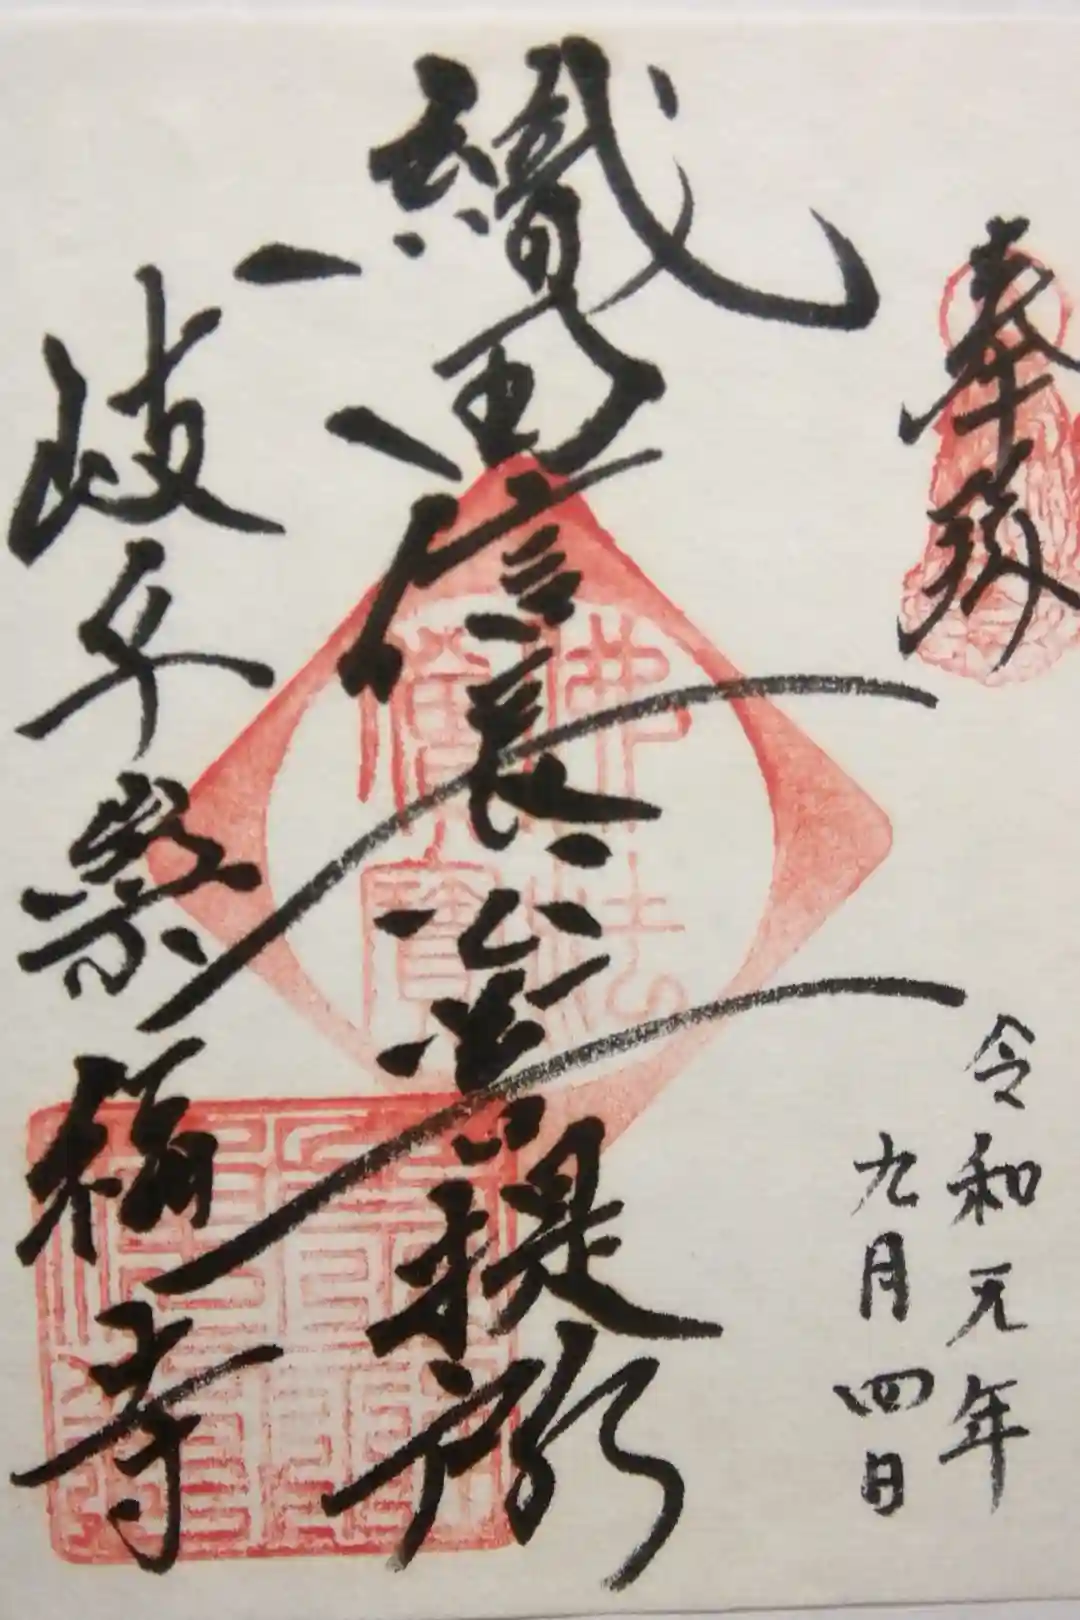 奉拝
令和元年
九月四日
織田信長公菩提所
岐阜崇福寺
佛法
僧寶